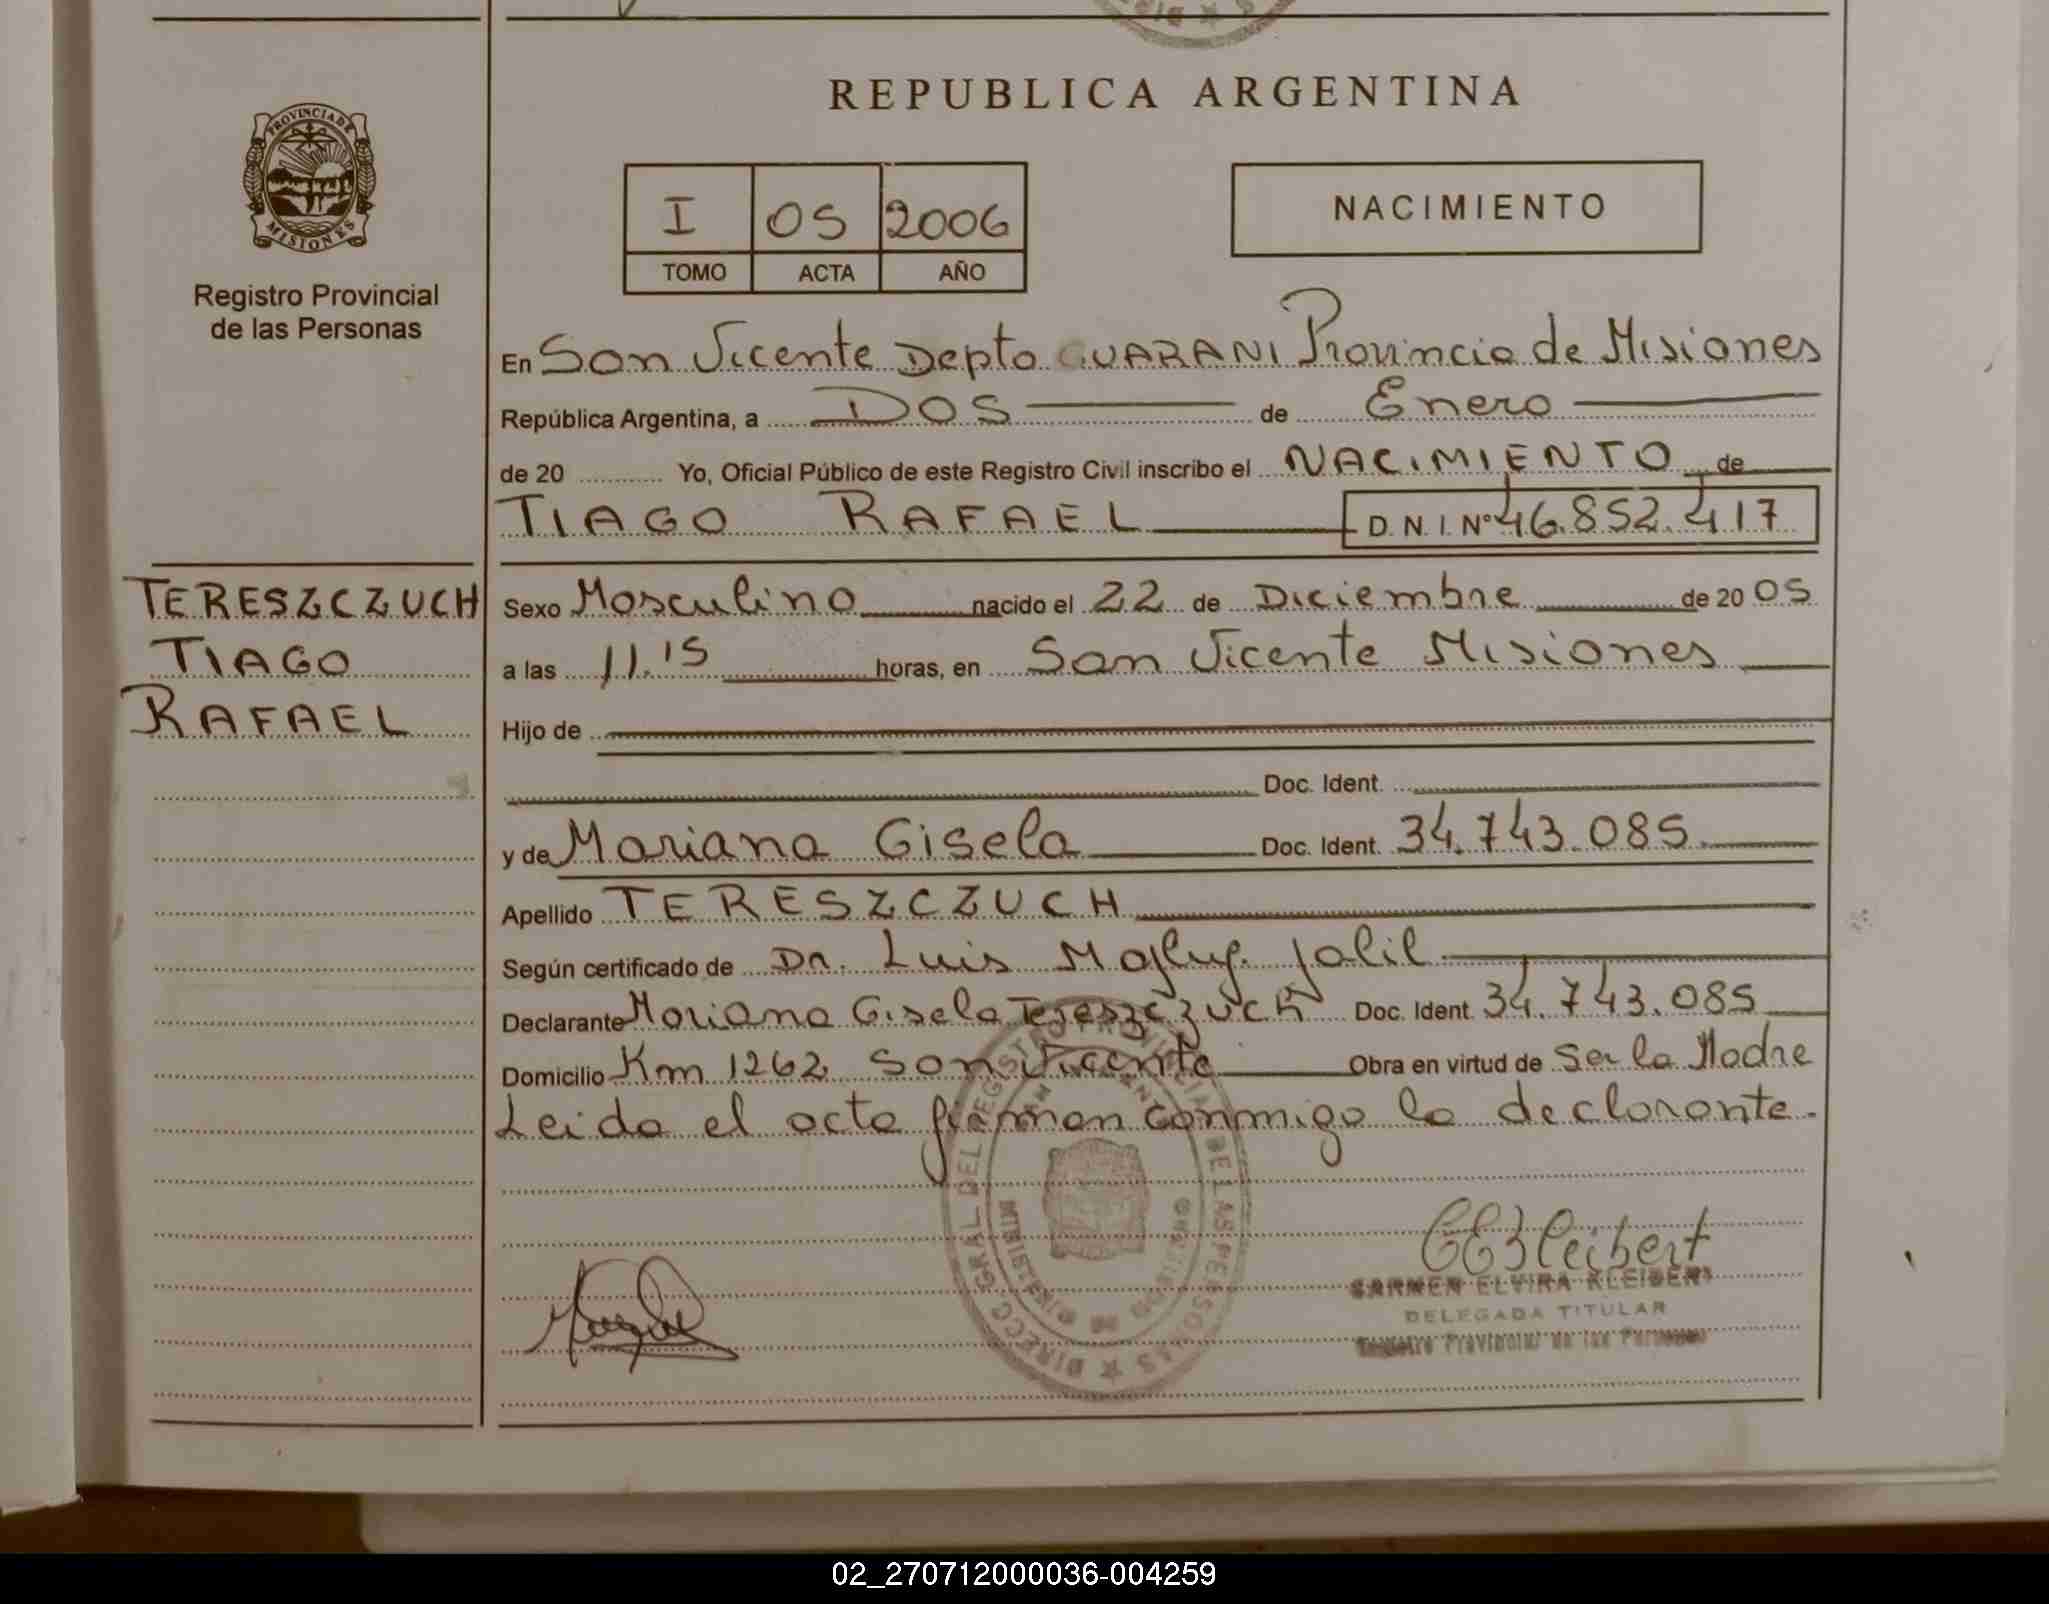 REPUBLICA ARGENTINA
PROVINCIA DE MISIONES
Registro Provincial
de las Personas
I 05 2006
TOMO ACTA AÑO
NACIMIENTO
En San Vicente Depto GUARANI Provincia de Misiones
República Argentina, a DOS de Enero
de 20 Yo, Oficial Público de este Registro Civil inscribo el NACIMIENTO de
TIAGO RAFAEL D.N.I. Nº 46.852.417
TERESZCZUCH
TIAGO
RAFAEL
Sexo Masculino nacido el 22 de Diciembre de 20 05
a las 11.15 horas, en San Vicente Misiones
Hijo de
Doc. Ident.
y de Mariana Gisela Doc. Ident. 34.743.085
Apellido TERESZCZUCH
Según certificado de Dr. Luis Jalil
Declarante Mariana Gisela Tereszczuch Doc. Ident. 34.743.085
Domicilio Km 1262 San Vicente Obra en virtud de Ser la Madre
Leida el acta firman conmigo la declarante.
DIRECC. GRAL. DEL REGISTRO PROVINCIAL DE LAS PERSONAS
CARMEN ELVIRA KLEIBERT
DELEGADA TITULAR
Registro Provincial de las Personas
02_270712000036-004259